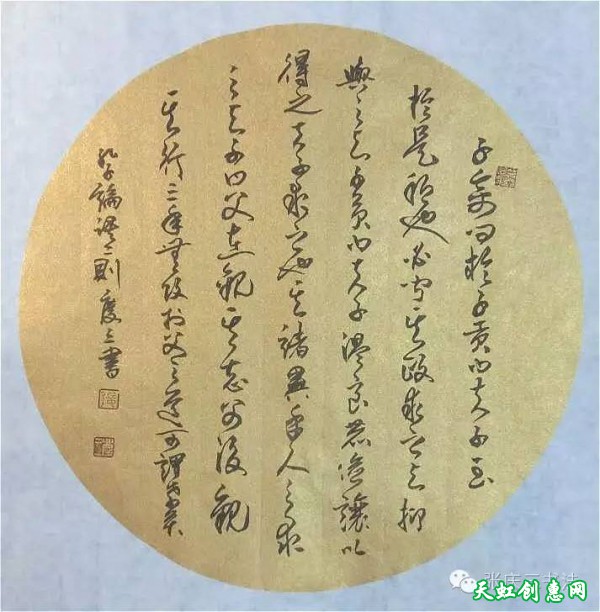 子禽問於子貢曰夫子至
於是邦也必聞其政求之与抑
與之与子貢曰夫子溫良恭儉讓以
得之夫子求之也其諸異乎人之求
之与子曰父在觀其志父沒觀
其行三年無改於父之道可謂孝矣
孔子論語二則慶三書
张庆三书法
天虹创惠网